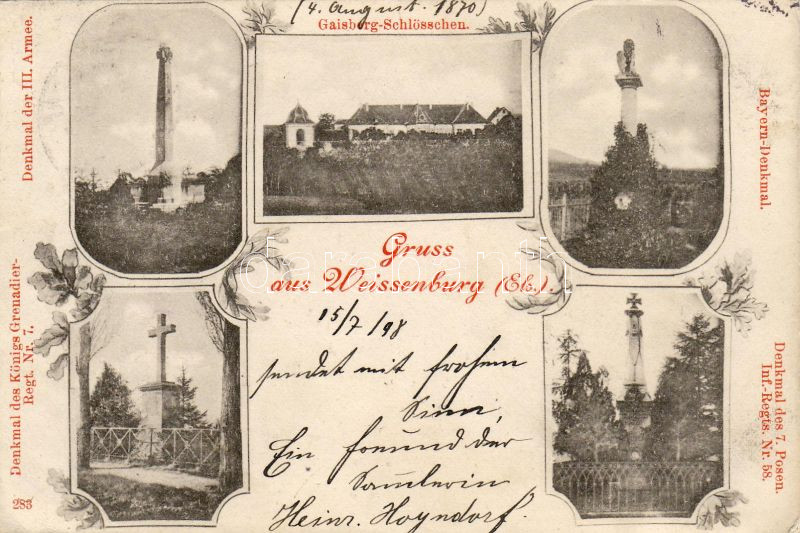 (4. August. 1870)
Gaisberg-Schlösschen.
Denkmal der III. Armee.
Bayern-Denkmal.
Gruss
aus Weissenburg (Els.).
Denkmal des Königs Grenadier-
Regt. Nr. 7.
Denkmal des 7. Posen.
Inf.-Regts. Nr. 58.
15/7/98
sendet mit frohem
Sinn,
Ein Freund der
Samlerin
Heinr. Hoyndorf.
283
darabanth.com